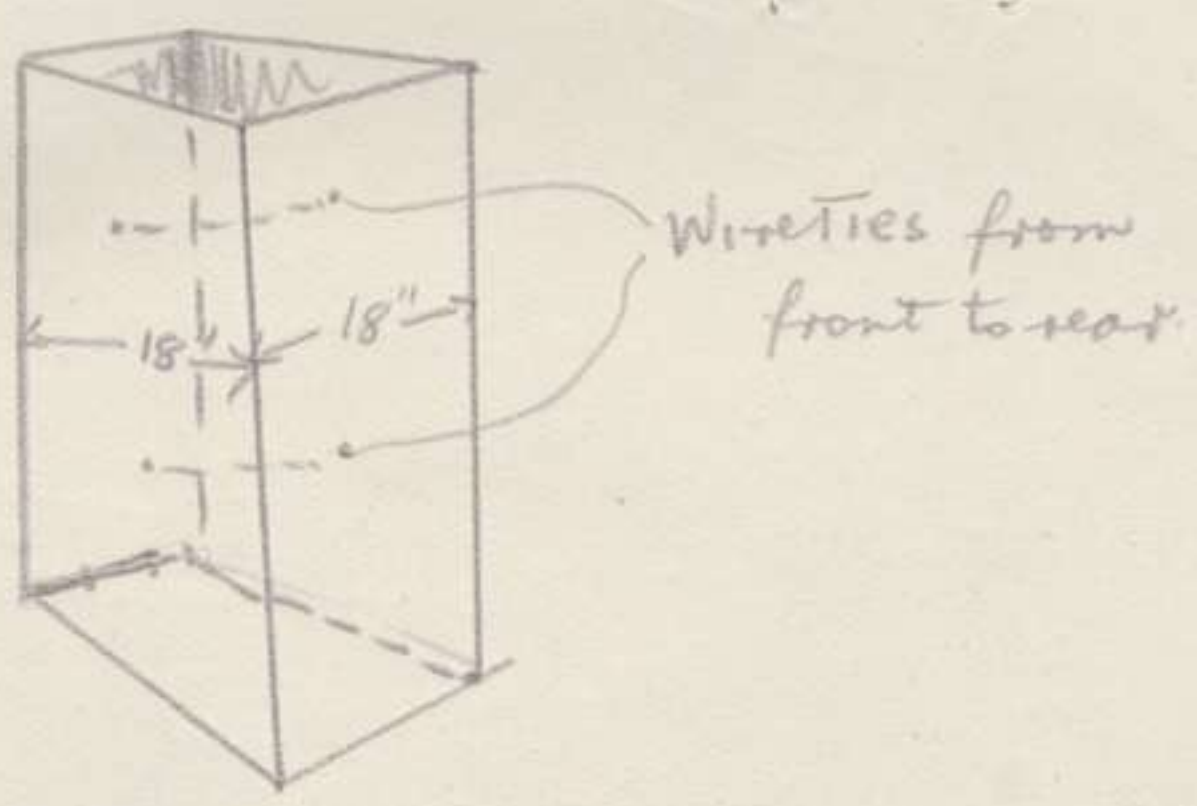 18"
18"
Wire Ties from
front to rear